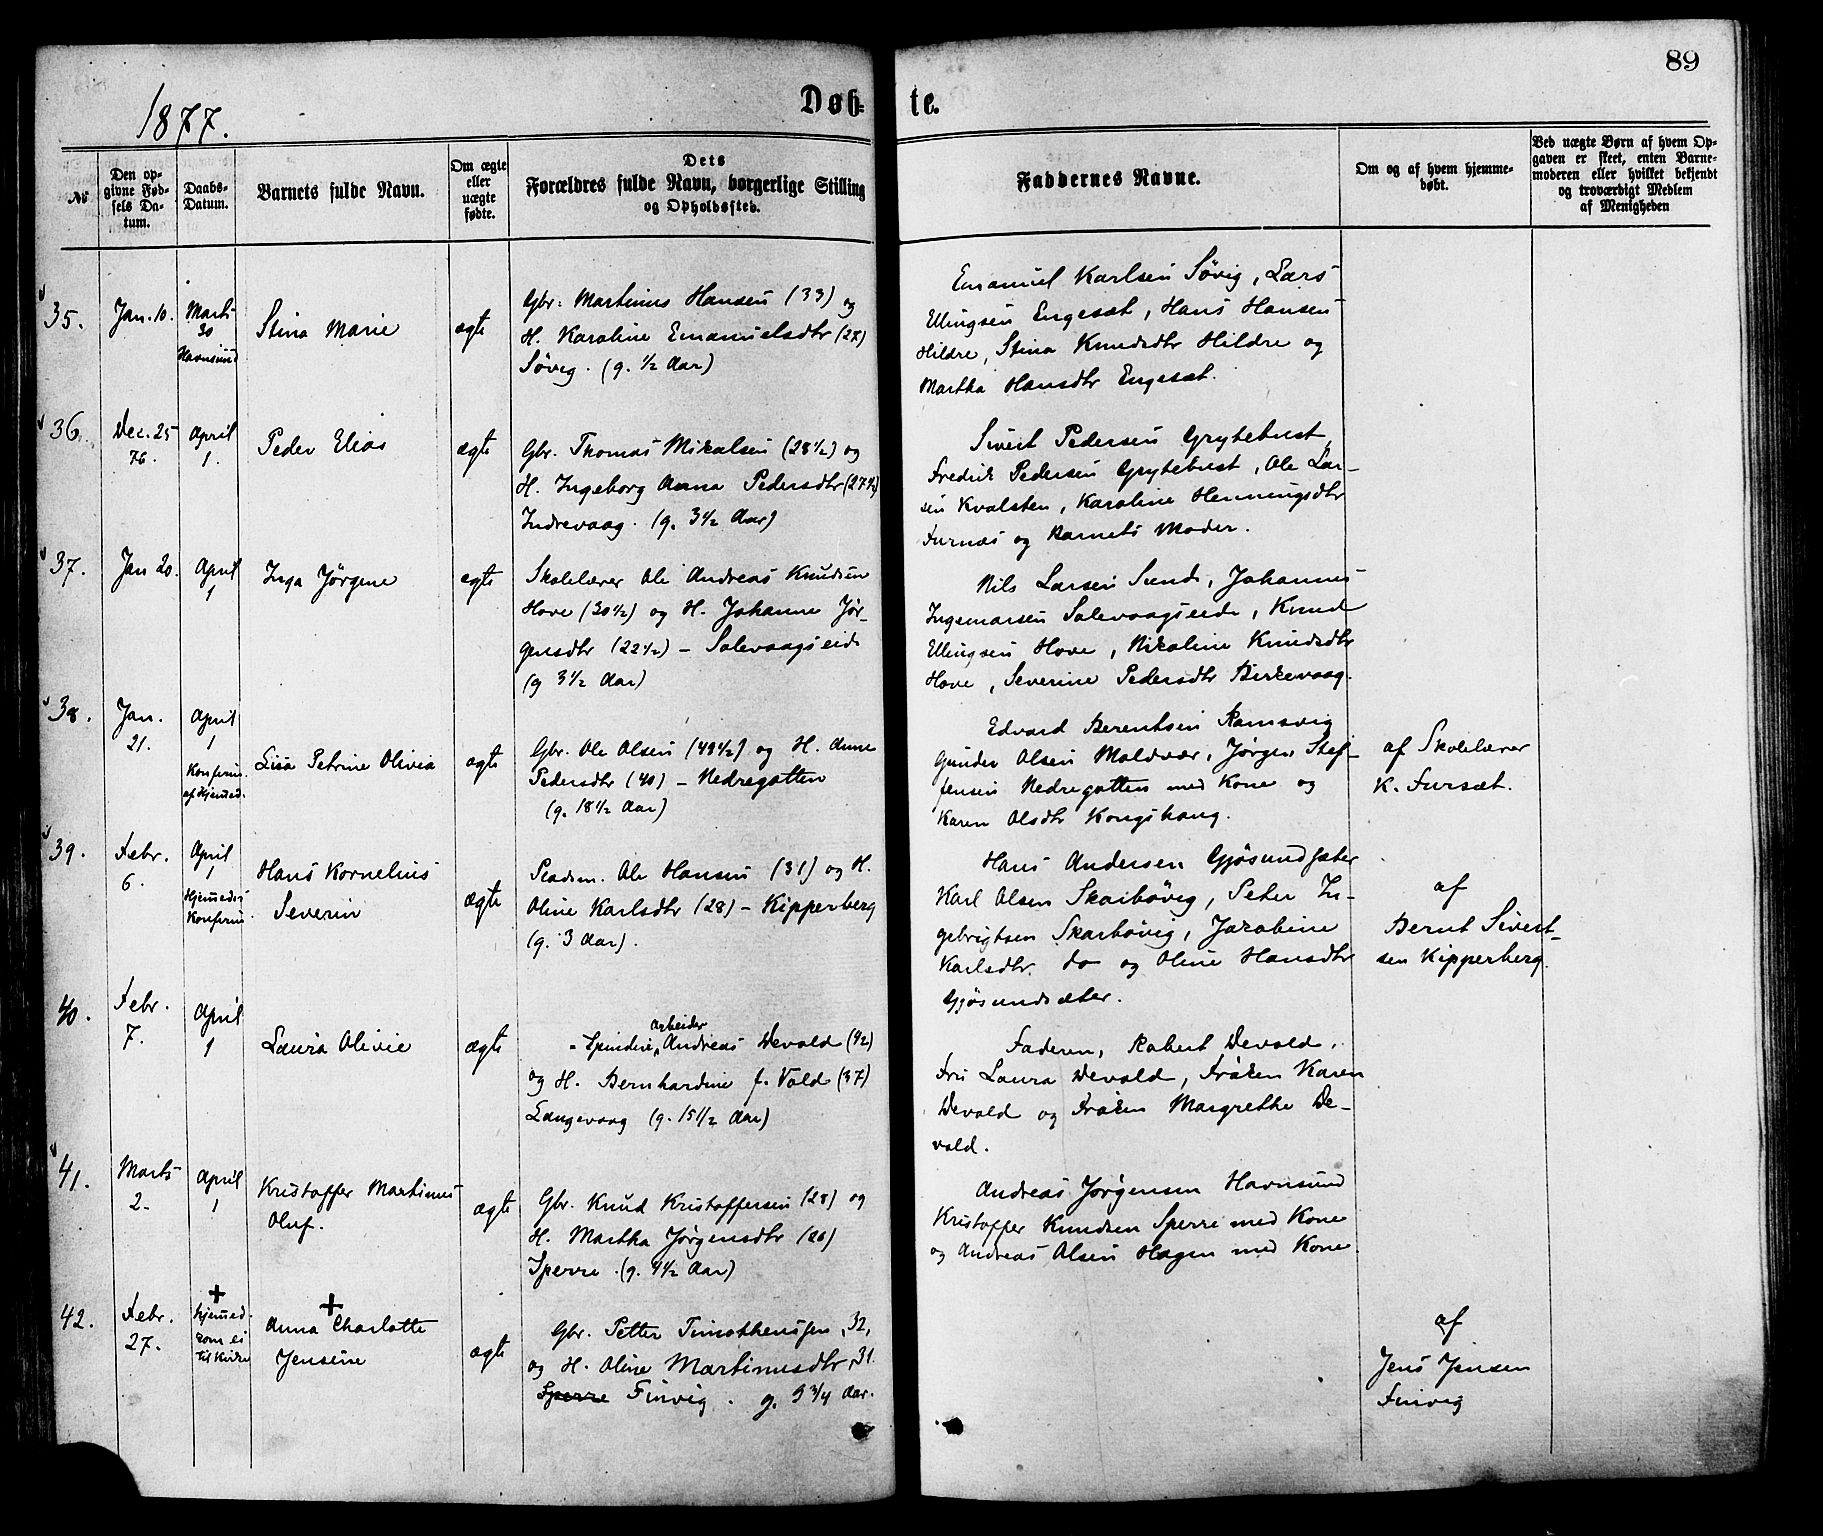 89
1877.
Døb-
te.
№
Den op-
givne Fød-
sels Da-
tum.
Daabs-
Datum.
Barnets fulde Navn.
Om ægte
eller
uægte
fødte.
Dets
Forældres fulde Navn, borgerlige Stilling
og Opholdssted.
Faddernes Navne.
Om og af hvem hjemme-
døbt.
Ved uægte Børn af hvem Op-
gaven er skeet, enten Barne-
moderen eller hvilket bekjendt
og troværdigt Medlem
af Menigheden
35.
Jan. 10.
Marts
30
Havnsund
Stina Marie
ægte
Gbr. Martinus Hansen (33) og
H. Karoline Emanuelsdtr (27)
Søvig. (g. 1/2 Aar)
Emanuel Karlsen Søvig, Lars
Ellingsen Engesæt, Hans Hansen
Hildre, Stina Knudsdtr Hildre og
Martha Hansdtr Engesæt.
36.
Dec. 25
76.
April
1.
Peder Elias
ægte
Gbr. Thomas Mikalsen (28 1/2) og
H. Ingeborg Anna Pedersdtr (27 1/2)
Indrevaag. (g. 3 1/2 Aar)
Sivert Pedersen Grytebust,
Fredrik Pedersen Grytebust, Ole Lar-
sen Kvalsten, Karoline Henningsdtr
Furnæs og Barnets Moder.
37.
Jan 20.
April
1
Inga Jørgine
ægte
Skolelærer Ole Andreas Knudsen
Hove (30 1/2) og H. Johanne Jør-
gensdtr (22 1/2) - Solevaagseide
(g 3 1/2 Aar)
Nils Larsen Sunde, Johannes
Ingemarsen Solevaagseide, Knud
Ellingsen Hove, Nikoline Knudsdtr
Hove, Severine Pedersdtr Birkevaag.
38.
Jan.
21.
April
1
Konferm.
af Hjemed.
Lisa Petrine Olivia
ægte
Gbr. Ole Olsen (49 1/2) og H. Anne
Pedersdtr (40) - Nedregotten
(g. 18 1/2 Aar)
Edvard Berentsen Ramsvig
Gunder Olsen Moldvær, Jørgen Stef-
fensen Nedregotten med Kone og
Karen Olsdtr Kongshaug.
af Skolelærer
K. Fursæt.
39.
Febr.
6.
April
1
Hjemedøb
Konferm.
Hans Kornelius
Severin
ægte
Pladsm. Ole Hansen (31) og H.
Oline Karlsdtr (28) - Kipperberg
(g. 3 Aar).
Hans Andersen Gjøsundsæter
Karl Olsen Skarbøvig, Peter In-
gebrigtsen Skarbøvig, Jakobine
Karlsdtr. do og Oline Hansdtr
Gjøsundsæter.
af
Bernt Sivert-
sen Kipperberg.
40.
Febr.
7.
April
1
Laura Olivie
ægte
arbeider
Spinderi, Andreas Devold (42)
og H. Bernhardine f. Vold (37)
Langevaag (g. 15 1/2 Aar)
Faderen, Robert Devold,
Fru Laura Devold, Frøken Karen
Devold og Frøken Margrethe De-
vold.
41.
Marts
2.
April
1
Kristoffer Martinus
Oluf.
ægte
Gbr. Knud Kristoffersen (28) og
H. Martha Jørgensdtr (26)
Sperre. (g. 4 1/2 Aar)
Andreas Jørgensen Havnsund
Kristoffer Knudsen Sperre med Kone
og Andreas Olsen Hagen med Kone.
42.
Febr.
27.
+
Hjemed.
kom ei
til Kirke
+
Anna Charlotte
Jensine
ægte
Gbr. Petter Timotheussen, 32,
og H. Oline Martinusdtr, 31.
Sperre Finvig. g. 9 3/4 Aar.
af
Jens Jensen
Finvig